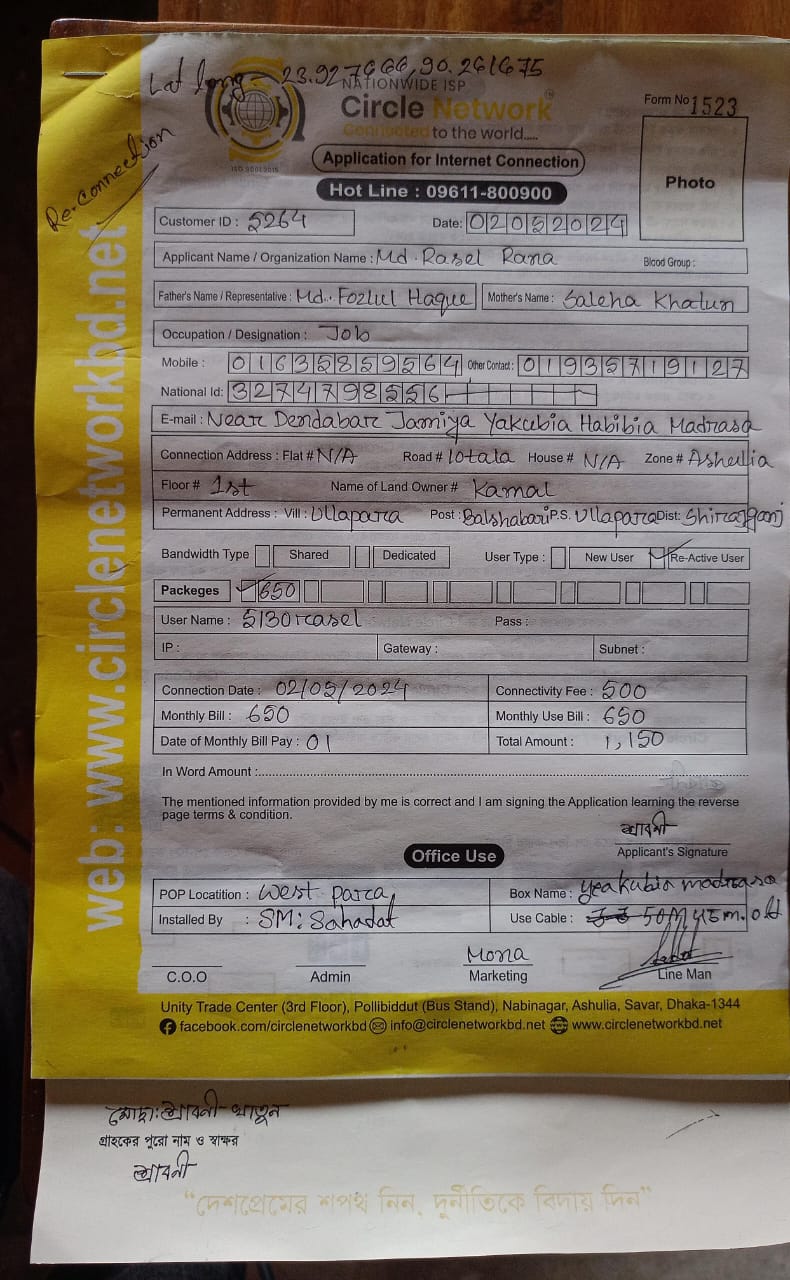 Lat long - 23.927666, 90.261675
NATIONWIDE ISP
Circle Network
Connected to the world.....
ISO 9001:2015
Form No 1523
Re-Connection
Application for Internet Connection
Photo
Hot Line : 09611-800900
Customer ID : 5264 Date: 02052024
Applicant Name / Organization Name : Md. Rasel Rana Blood Group :
Father's Name / Representative : Md. Fozlul Haque Mother's Name : Saleha Khatun
Occupation / Designation : Job
Mobile : 01635859564 Other Contact : 01935719127
National Id: 3274798556
E-mail : Near Dendabar Jamiya Yakubia Habibia Madrasa
Connection Address : Flat # N/A Road # 10tala House # N/A Zone # Ashulia
Floor # 1st Name of Land Owner # Kamal
Permanent Address : Vill : Ullapara Post : Balshabari P.S. Ullapara Dist: Shirajganj
Bandwidth Type Shared Dedicated User Type : New User Re-Active User
Packeges 650
User Name : 5130rasel Pass :
IP : Gateway : Subnet :
Connection Date : 02/05/2024 Connectivity Fee : 500
Monthly Bill : 650 Monthly Use Bill : 650
Date of Monthly Bill Pay : 01 Total Amount : 1,150
In Word Amount :
The mentioned information provided by me is correct and I am signing the Application learning the reverse
page terms & condition.
শ্রাবনী
Applicant's Signature
Office Use
POP Locatition : West para Box Name : yeakubia madrasa
Installed By : SM: Sahadat Use Cable : 50m, 45m. old
Mona
C.O.O Admin Marketing Line Man
Unity Trade Center (3rd Floor), Pollibiddut (Bus Stand), Nabinagar, Ashulia, Savar, Dhaka-1344
facebook.com/circlenetworkbd info@circlenetworkbd.net www.circlenetworkbd.net
web: www.circlenetworkbd.net
মোছা: শ্রাবনী খাতুন
গ্রাহকের পুরো নাম ও স্বাক্ষর
শ্রাবনী
“দেশপ্রেমের শপথ নিন, দুর্নীতিকে বিদায় দিন”